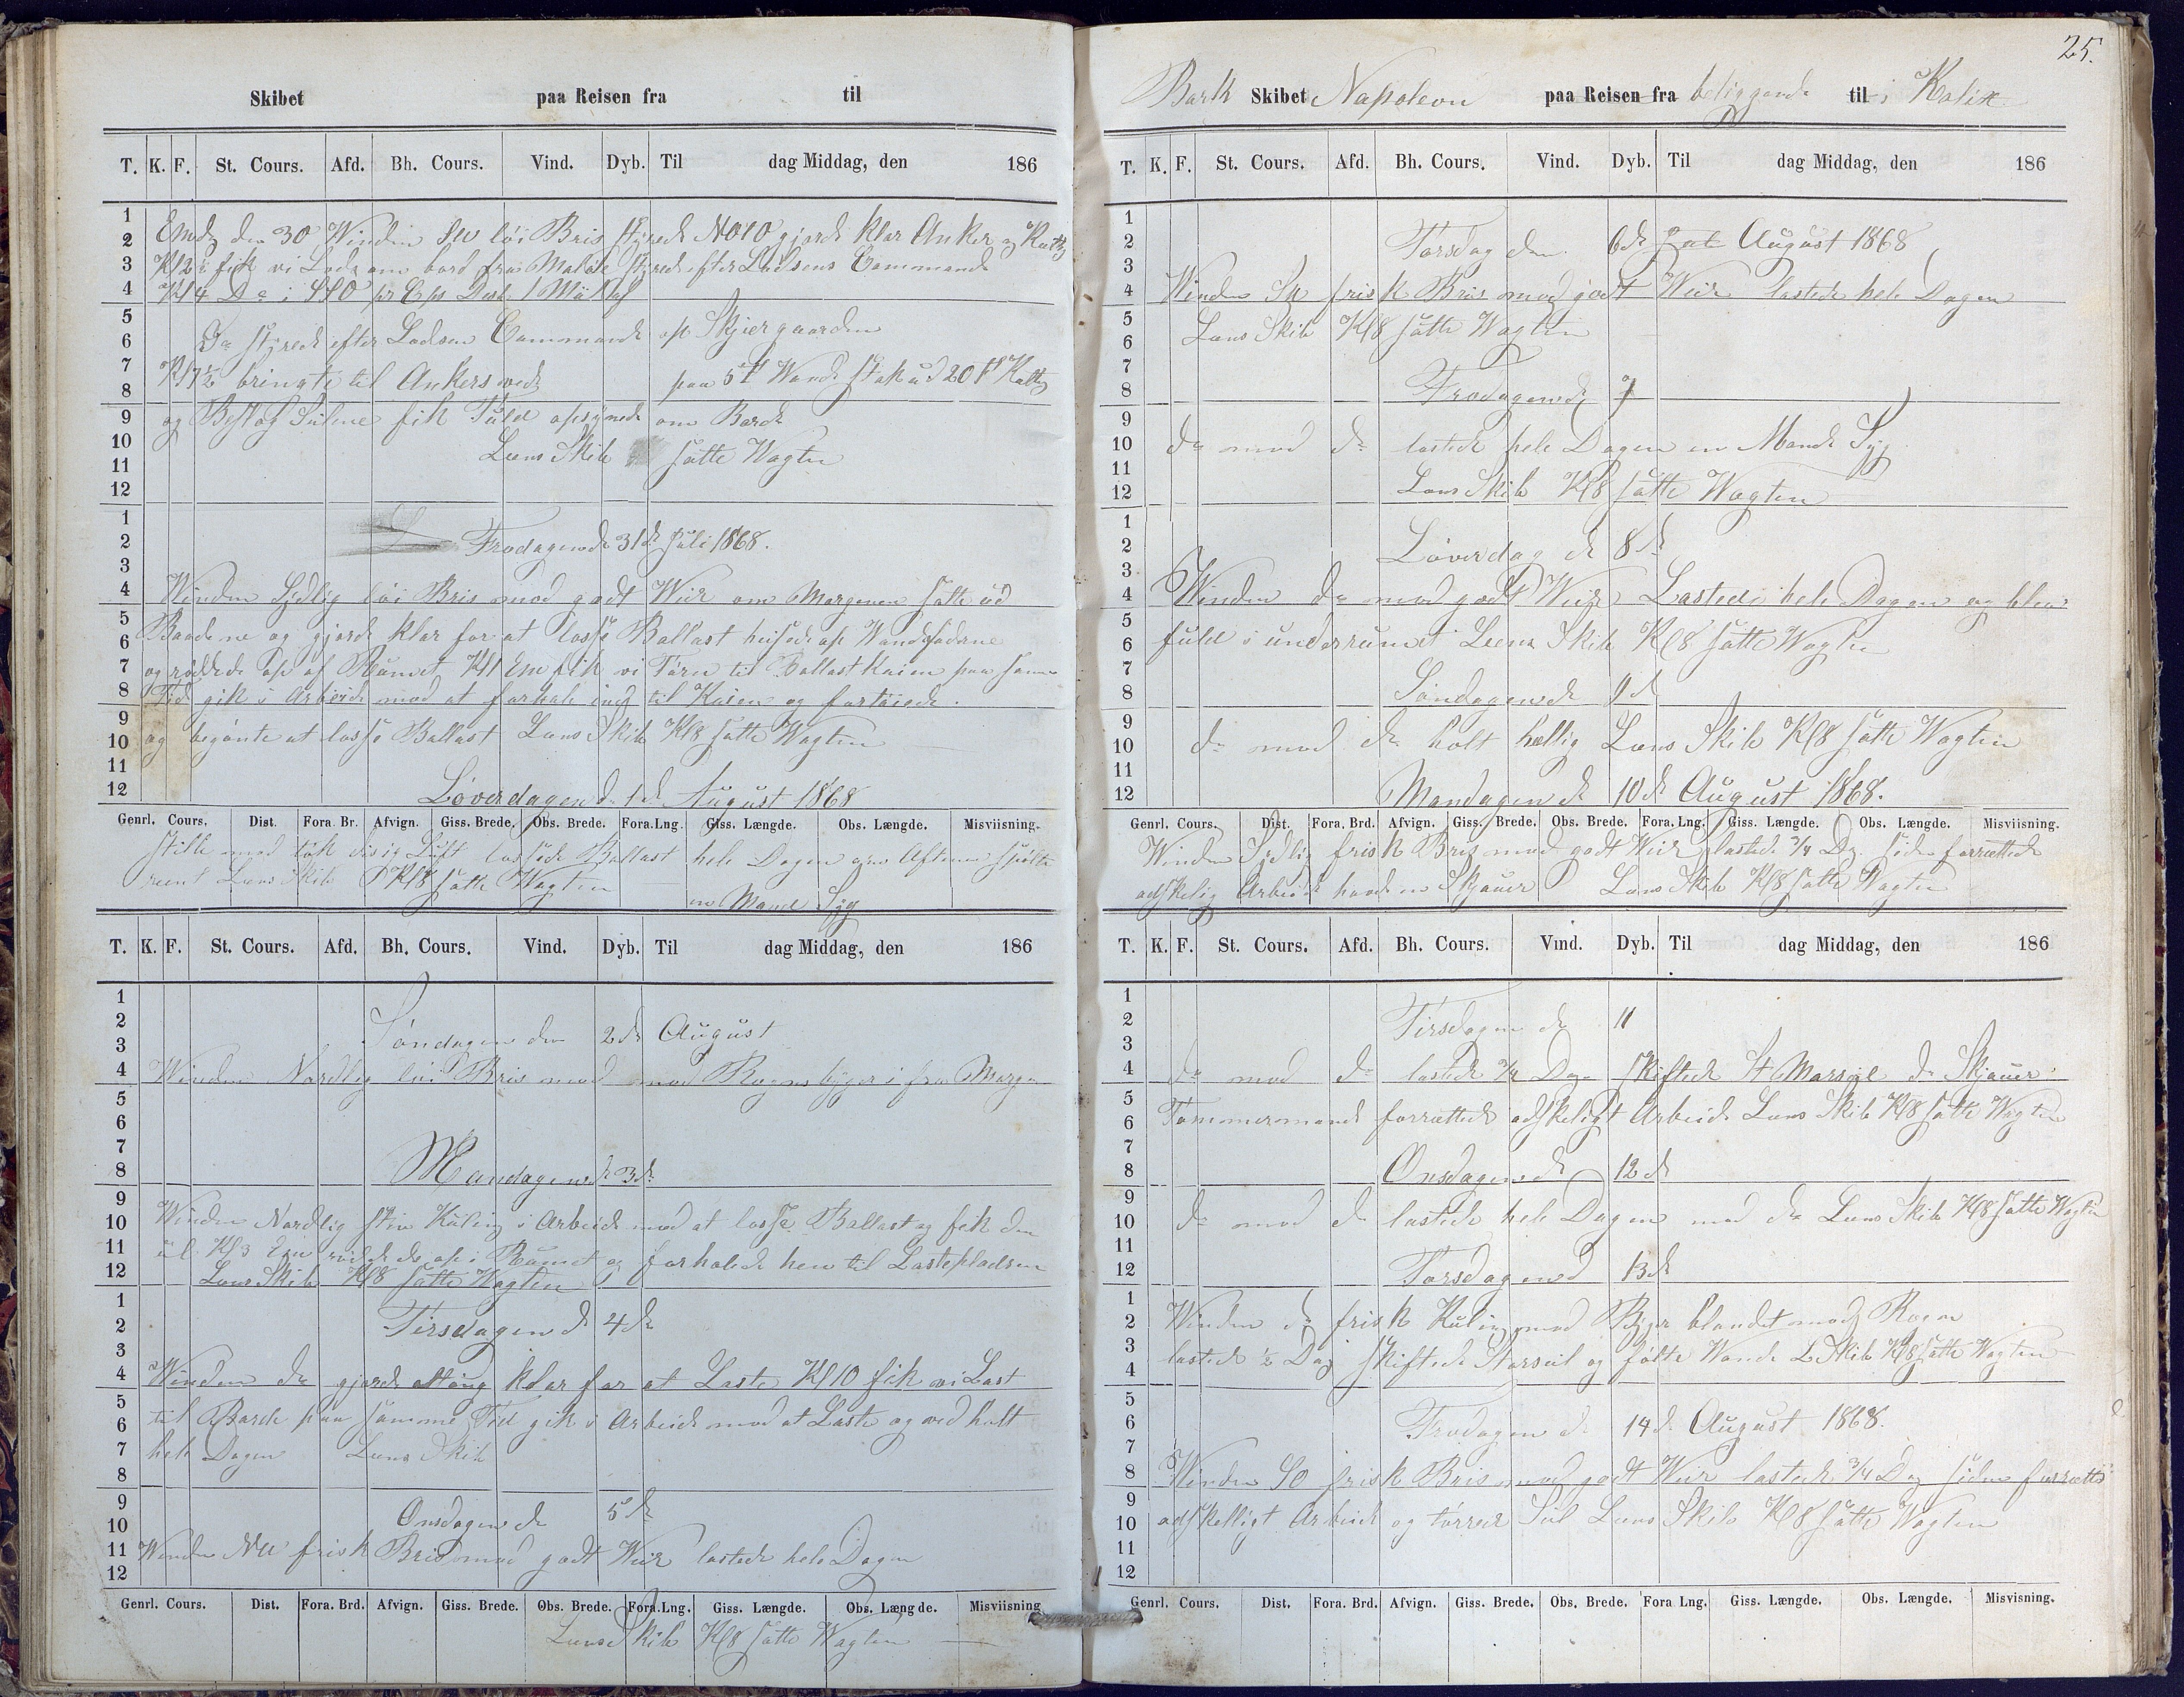 Skibet paa Reisen fra til
T. K. F. St. Cours. Afd. Bh. Cours. Vind. Dyb. Til dag Middag, den 186
1
2
3
4
5
6
7
8
9
10
11
12
Emdg den 30 Winden SW löi Bris styrede gjorde klar Anker og
Kl 2 fik vi Lods om bord fra Malöe styrede efter Lodsens Commando
Kl 4
Da styrede efter Lodsens Commando op Skjergaarden
Kl 7½ bringte til Ankers med paa 5 Wand stak ud 20
og fik om Bord
Lens Skib satte Wagten
1
2
3
4
5
6
7
8
9
10
11
12
Fredagen d 31d Juli 1868.
Winden Sydlig löi Bris med godt Weir om Morgenen satte ud
Baadene og gjorde klar for at losse Ballast heisede op Wandfadene
og ryddede op af Rumet Kl 1 Em fik vi Törn til Ballast Kaien paa samme
Tid gik i Arbeide med at forhale ind til Kaien og fortöiede.
og begÿnte at losse Ballast Lens Skib Kl 8 satte Wagten
Löverdagen d 1d August 1868
Genrl. Cours. Dist. Fora. Br. Afvign. Giss. Brede. Obs. Brede. Fora.Lng. Giss. Længde. Obs. Længde. Misviisning.
Stille med tÿk disig Luft lossede Ballast hele Dagen om Aftenen spölte
reent Lens Skib Kl 8 satte Wagten
en Mand Sÿg
T. K. F. St. Cours. Afd. Bh. Cours. Vind. Dyb. Til dag Middag, den 186
1
2
3
4
5
6
7
8
9
10
11
12
Söndagen den 2d August
Winden Nordlig löi Bris med med Regnbyger i fra Morgen
Mandagen d 3d
Winden Nordlig stiv Kuling i Arbeide med at losse Ballast og fik den
ud Kl 3 Em ryddede op i Rumet og forhalede hen til Lastepladsen
Lens Skib Kl 8 satte Wagten
1
2
3
4
5
6
7
8
9
10
11
12
Tirsdagen d 4d
Winden do gjorde alting klar for at Laste Kl 10 fik vi Last
til Borde paa samme Tid gik i Arbeide med at Laste og ved holt
hele Dagen Lens Skib
Onsdagen d 5d
Winden NW frisk Bris med godt Weir lastede hele Dagen
Genrl. Cours. Dist. Fora. Brd. Afvign. Giss. Brede. Obs. Brede. Fora.Lng. Giss. Længde. Obs. Længde. Misviisning
Lens Skib Kl 8 satte Wagten
25.
Bark Skibet Napoleon paa Reisen fra beliggende til i Kalix
T. K. F. St. Cours. Afd. Bh. Cours. Vind. Dyb. Til dag Middag, den 186
1
2
3
4
5
6
7
8
9
10
11
12
Torsdag den 6d August 1868
Winden SW frisk Bris med godt Weir lastede hele Dagen
Lens Skib Kl 8 satte Wagten
Fredagen d 7
do med do lastede hele Dagen en Mand Syg
Lens Skib Kl 8 satte Wagten
1
2
3
4
5
6
7
8
9
10
11
12
Löverdag d 8d
Winden do med godt Weir Lastede hele Dagen og blev
fuld i underrumet Lens Skib Kl 8 satte Wagten
Söndagen d 9d
do med do holt hellig Lens Skib Kl 8 satte Wagten
Mandagen d 10d August 1868.
Genrl. Cours. Dist. Fora. Brd. Afvign. Giss. Brede. Obs. Brede. Fora. Lng. Giss. Længde. Obs. Længde. Misviisning.
Winden Sydlig frisk Bris med godt Weir lastede 3/4 Dag siden forrettede
adskelig Arbeide havde en Skjauer Lens Skib Kl 8 satte Wagten
T. K. F. St. Cours. Afd. Bh. Cours. Vind. Dyb. Til dag Middag, den 186
1
2
3
4
5
6
7
8
9
10
11
12
Tirsdagen d 11
do med do lastede 3/4 Dag skiftede St Marseil do Skjauer
Tömmermand forrettede adskeligt Arbeide Lens Skib Kl 8 satte Wagten
Onsdagen d 12d
do med do lastede hele Dagen med do Lens Skib Kl 8 satte Wagten
Torsdagen d 13d
1
2
3
4
5
6
7
8
9
10
11
12
Winden do frisk Kuling med Byger blandet med Regn
lastede ½ Dag skiftede Marseil og fölte Wande L Skib Kl 8 satte Wagten
Fredagen d 14d August 1868.
Winden SO frisk Bris med godt Weir lastede 3/4 Dag siden forrette
adskelligt Arbeide og törrede Seil Lens Skib Kl 8 satte Wagten
Genrl. Cours. Dist. Fora. Brd. Afvign. Giss. Brede. Obs. Brede. Fora Lng. Giss. Længde. Obs. Længde. Misvisning.